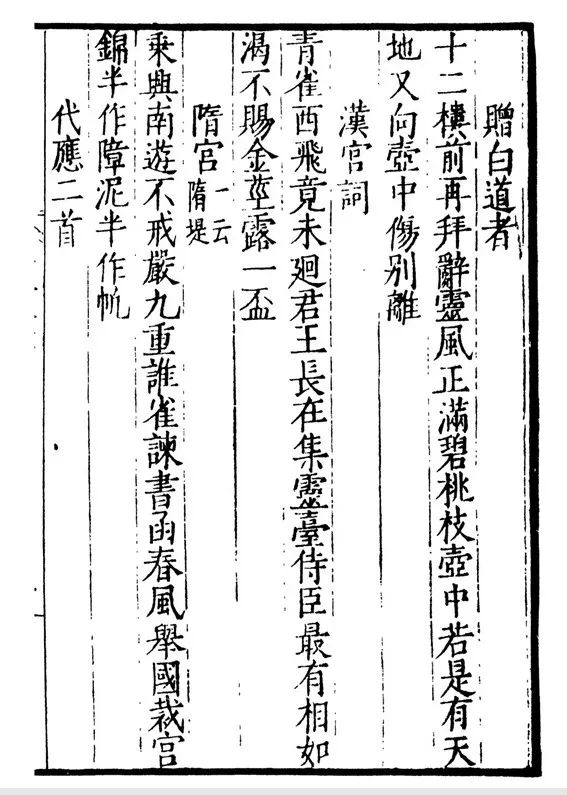 贈白道者
十二樓前再拜辭靈風正滿碧桃枝壺中若是有天
地又向壺中傷别離
漢宫詞
青雀西飛竟未廻君王長在集靈臺侍臣最有相如
渴不賜金莖露一盃
隋宫一云隋堤
乘興南遊不戒嚴九重誰雀諫書函春風舉國裁宫
錦半作障泥半作帆
代應二首